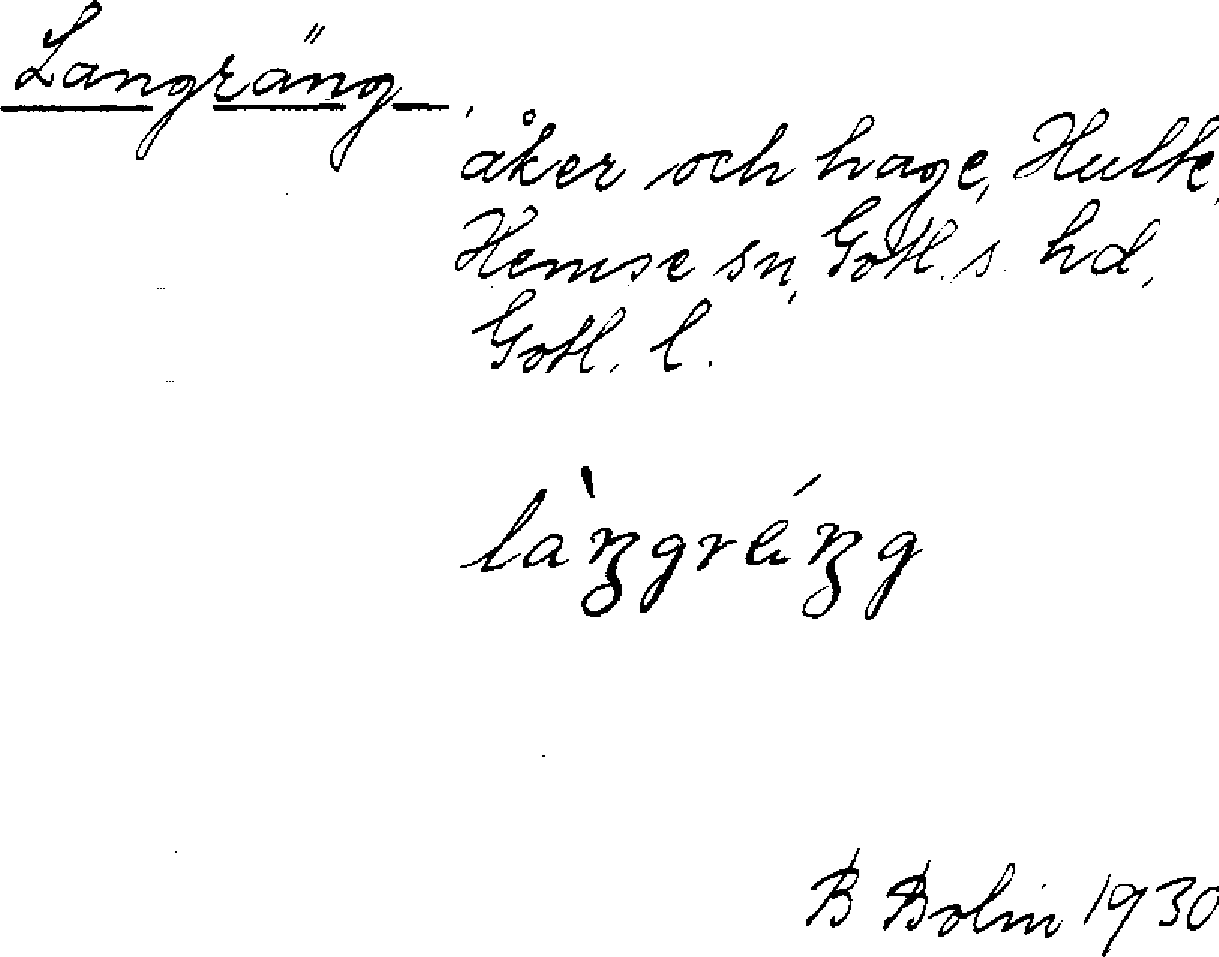 Langräng,
åker och hage, Hulte,
Hemse sn, Gotl. s. hd,
Gotl. l.
làŋgréŋg
B Bolin 1930